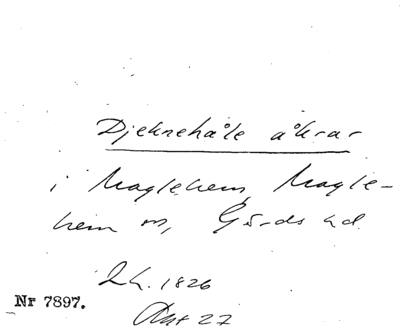 Djeknehåle åkrar
i Maglehem, Magle-
hem sn, Gärds hd.
Lh. 1826
Akt 27
Nr 7897.